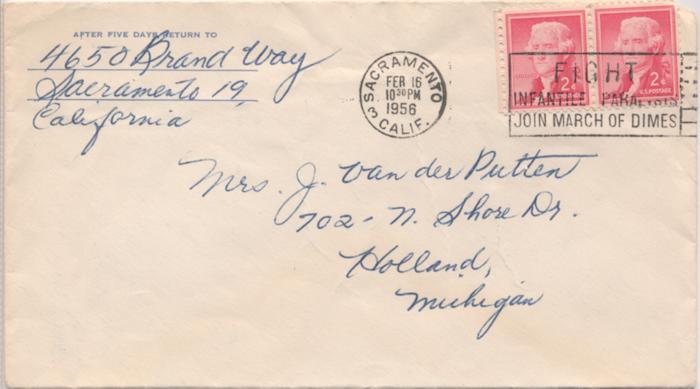 AFTER FIVE DAYS RETURN TO
4650 Brand Way
Sacramento 19,
California
SACRAMENTO
FEB 16
10 30 PM
1956
3 CALIF.
2¢ 2¢
U.S. POSTAGE
FIGHT
INFANTILE PARALYSIS
JOIN MARCH OF DIMES
Mrs. J. Van der Putten
702 - N. Shore Dr.
Holland,
Michigan